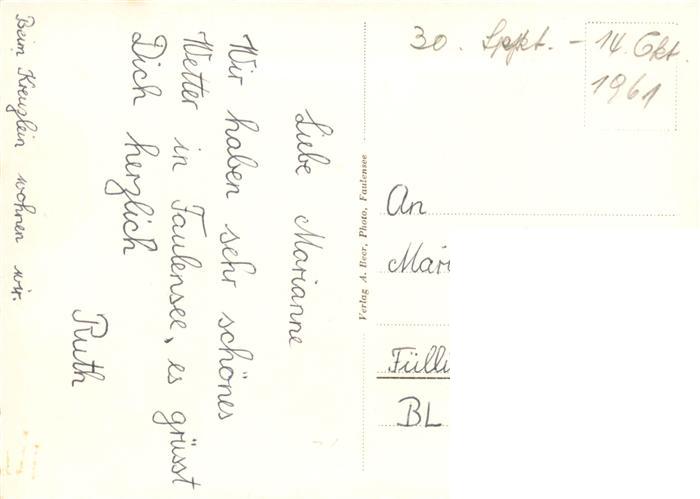 Liebe Marianne
Wir haben sehr schönes
Wetter in Faulensee, es grüsst
Dich herzlich
Ruth
Beim Kreuzlein wohnen wir.
Verlag A. Beer, Photo, Faulensee
30. Sept. - 14. Okt.
1961
An
Mari
Fülli
BL